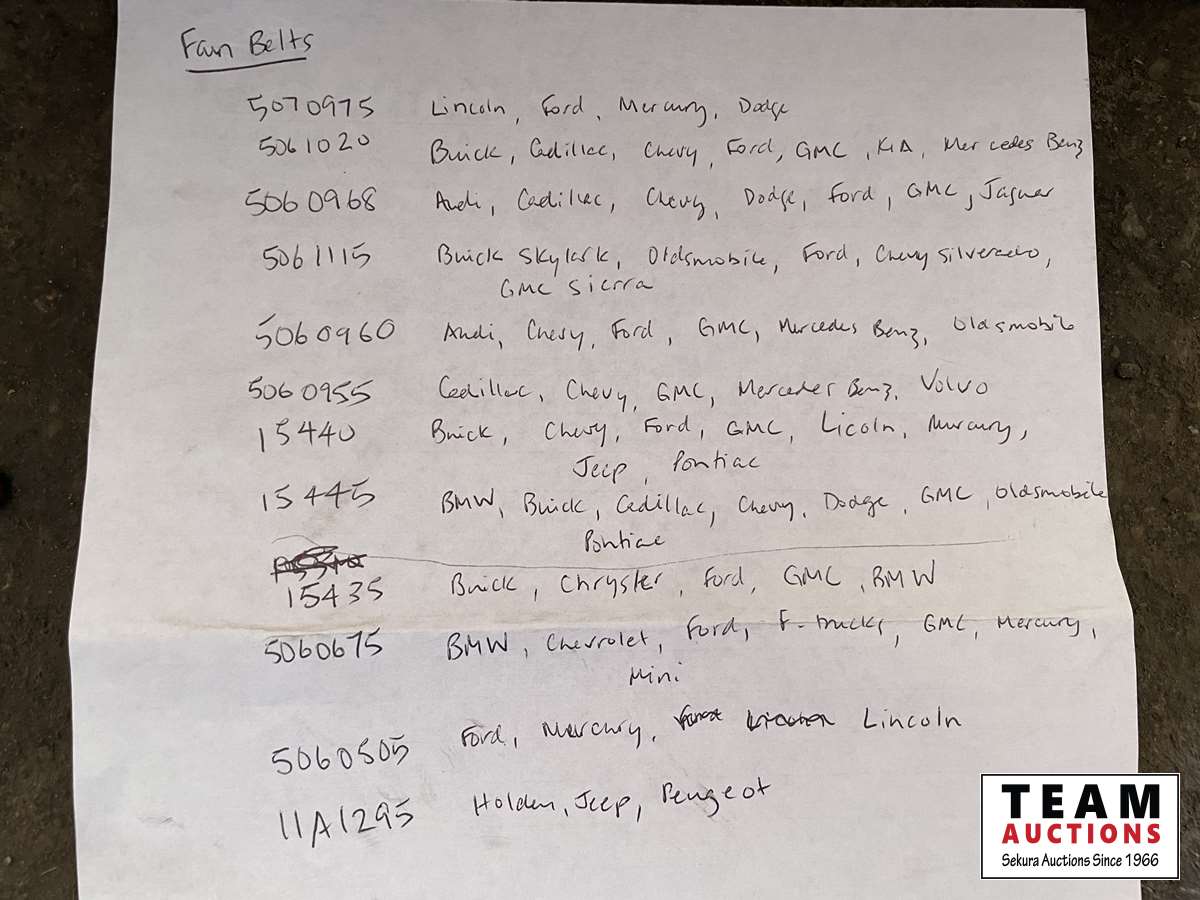 Fan Belts
5070975 Lincoln, Ford, Mercury, Dodge
5061020 Buick, Cadillac, Chevy, Ford, GMC, KIA, Mercedes Benz
5060968 Audi, Cadillac, Chevy, Dodge, Ford, GMC, Jaguar
5061115 Buick Skylark, Oldsmobile, Ford, Chevy Silverado,
GMC Sierra
5060960 Audi, Chevy, Ford, GMC, Mercedes Benz, Oldsmobile
5060955 Cadillac, Chevy, GMC, Mercedes Benz, Volvo
15440 Buick, Chevy, Ford, GMC, Licoln, Mercury,
Jeep, Pontiac
15445 BMW, Buick, Cadillac, Chevy, Dodge, GMC, Oldsmobile
Pontiac
15435 Buick, Chrysler, Ford, GMC, BMW
5060675 BMW, Chevrolet, Ford, F-trucks, GMC, Mercury,
Mini
5060505 Ford, Mercury, Lincoln
11A1295 Holden, Jeep, Peugeot
TEAM
AUCTIONS
Sekura Auctions Since 1966